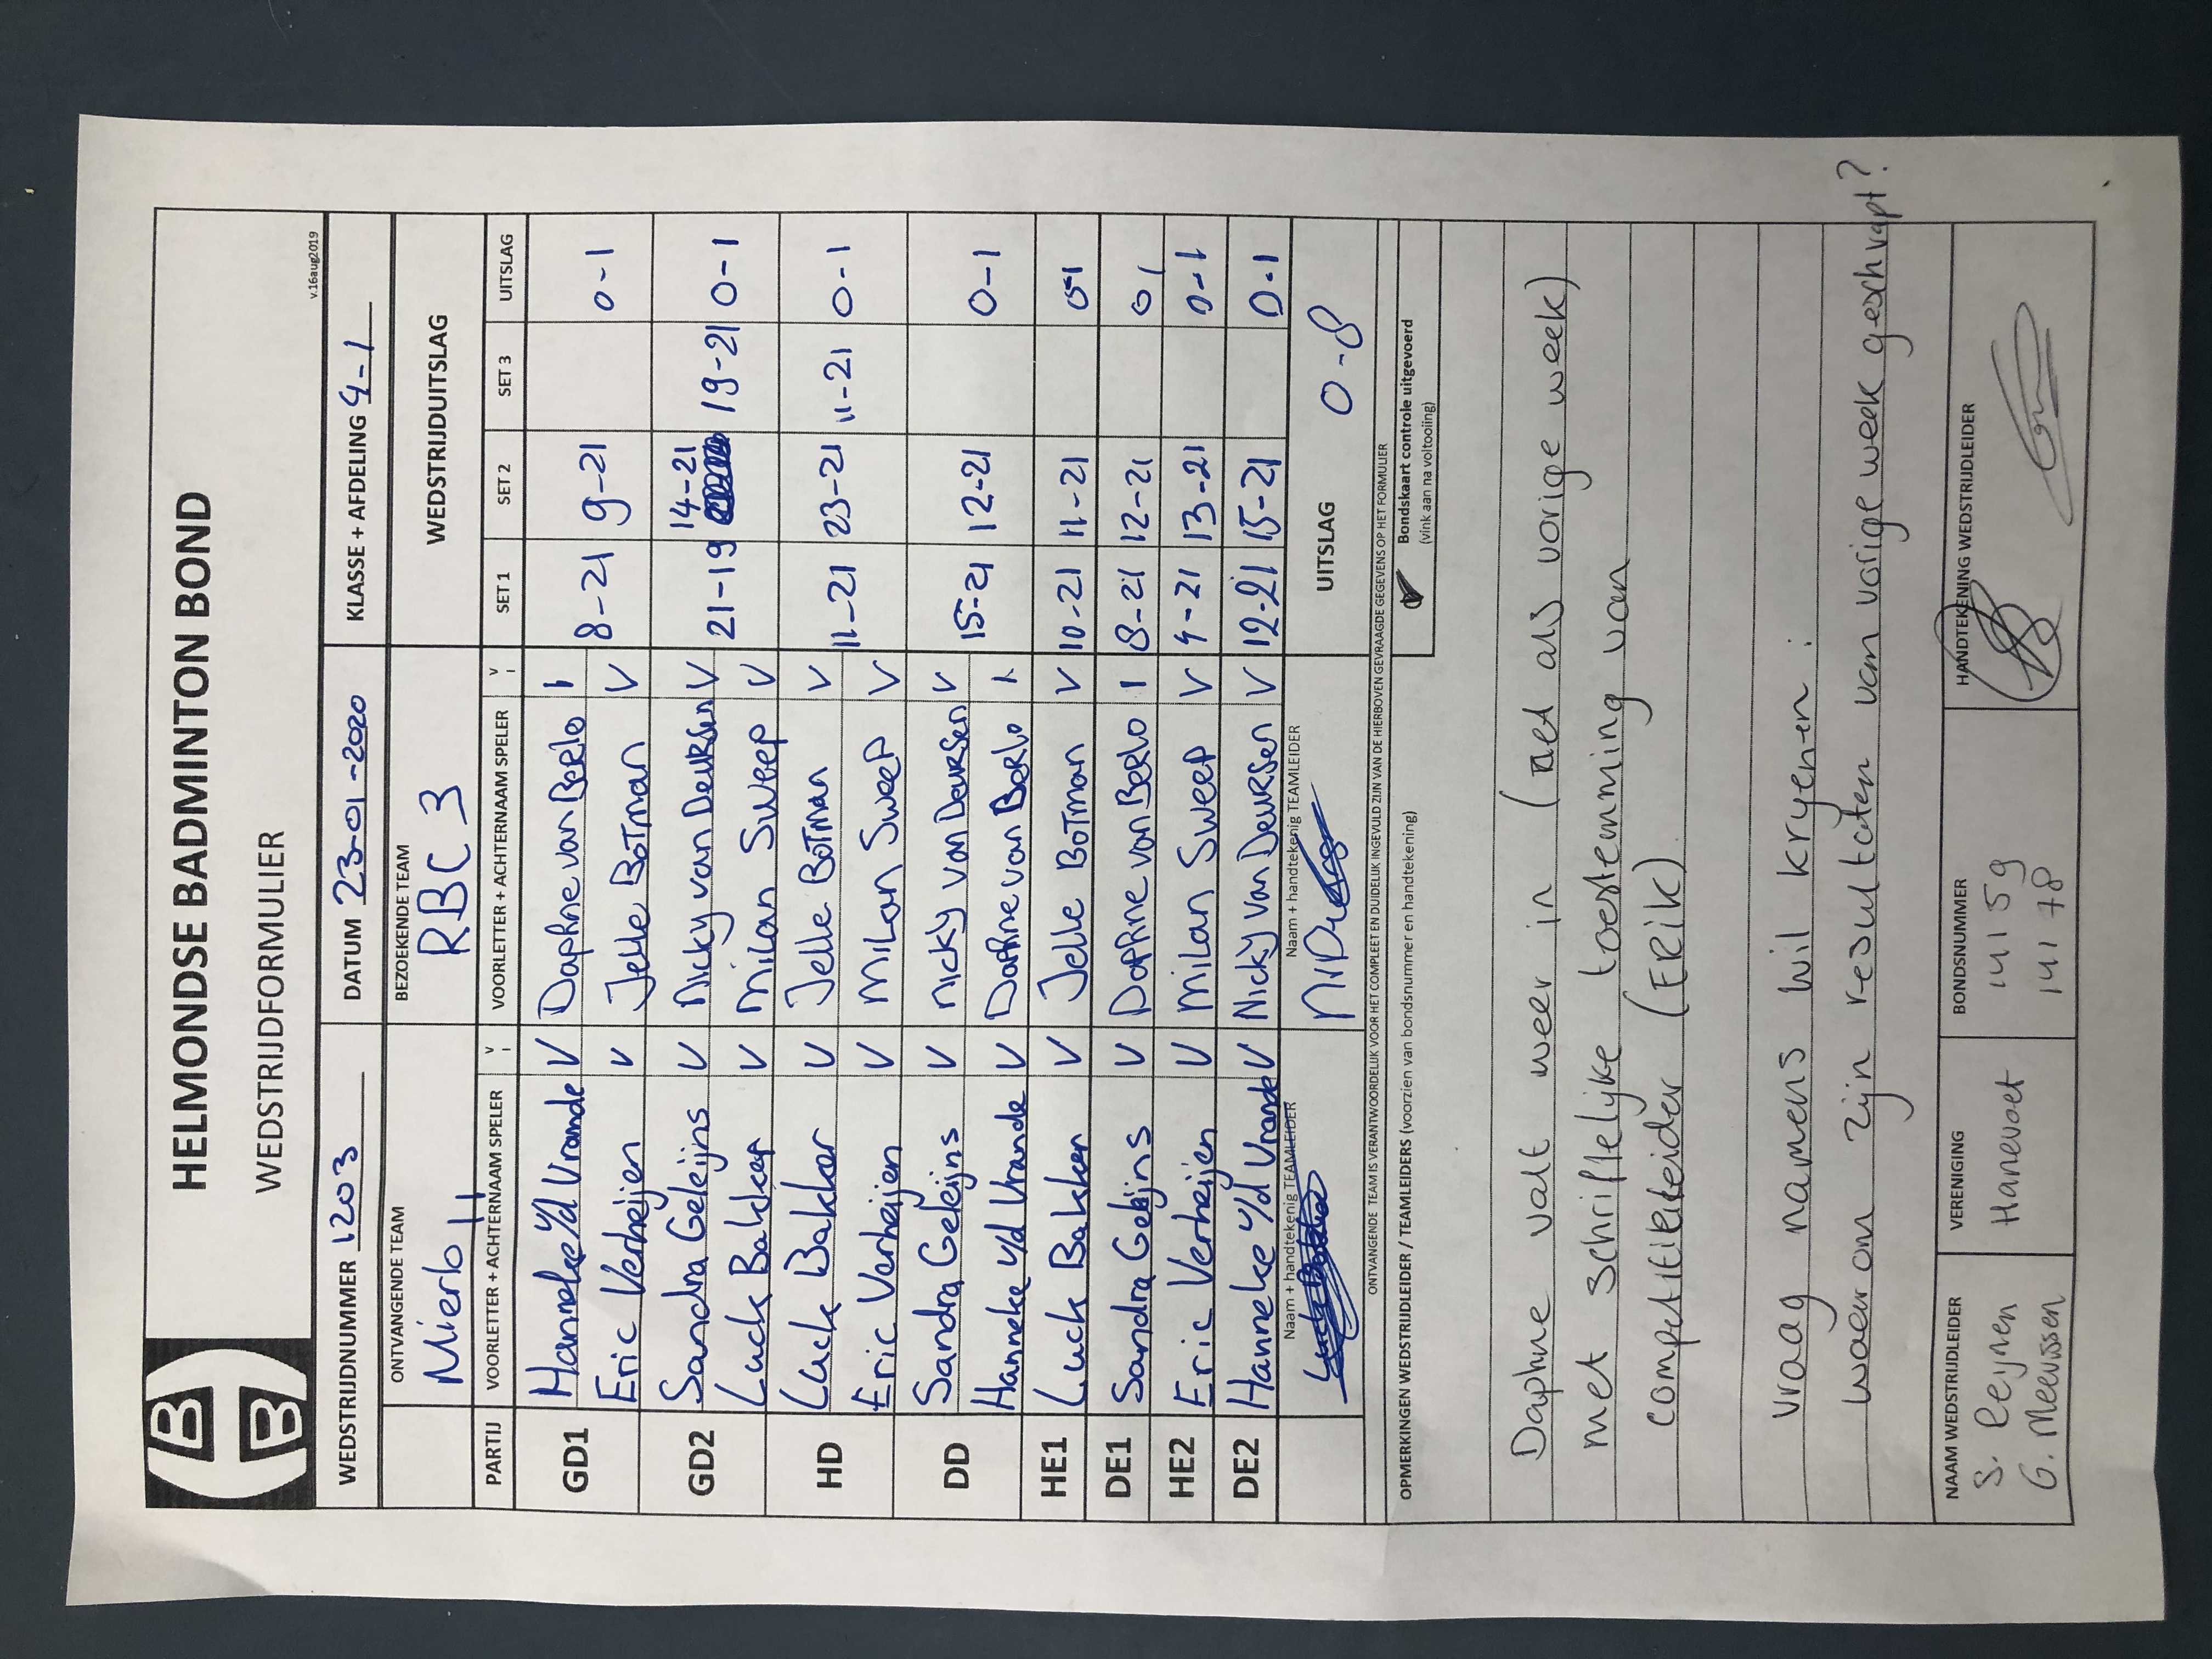 HELMONDSE BADMINTON BOND
WEDSTRIJDFORMULIER
v.16aug2019
WEDSTRIJDNUMMER 1203 DATUM 23-01-2020 KLASSE + AFDELING 4-1
ONTVANGENDE TEAM BEZOEKENDE TEAM WEDSTRIJDUITSLAG
Mierlo 1 RBC 3
PARTIJ VOORLETTER + ACHTERNAAM SPELER V I VOORLETTER + ACHTERNAAM SPELER V I SET 1 SET 2 SET 3 UITSLAG
GD1 Hanneke v/d Vrande V Daphne van Berlo I 8-21 9-21 0-1
Eric Verheijen V Jelle Botman V
GD2 Sandra Geleijns V Nicky van Deursen V 21-19 14-21 19-21 0-1
Luck Bakker V Milan Sweep V
HD Luck Bakker V Jelle Botman V 11-21 23-21 11-21 0-1
Eric Verheijen V Milan Sweep V
DD Sandra Geleijns V Nicky van Deursen V 15-21 12-21 0-1
Hanneke v/d Vrande V Daphne van Berlo I
HE1 Luck Bakker V Jelle Botman V 10-21 11-21 0-1
DE1 Sandra Geleijns V Daphne van Berlo I 8-21 12-21 0 1
HE2 Eric Verheijen V Milan Sweep V 9-21 13-21 0-1
DE2 Hanneke v/d Vrande V Nicky van Deursen V 12-21 15-21 0-1
Naam + handtekenig TEAMLEIDER Naam + handtekenig TEAMLEIDER UITSLAG 0-8
ONTVANGENDE TEAM IS VERANTWOORDELIJK VOOR HET COMPLEET EN DUIDELIJK INGEVULD ZIJN VAN DE HIERBOVEN GEVRAAGDE GEGEVENS OP HET FORMULIER
OPMERKINGEN WEDSTRIJDLEIDER / TEAMLEIDERS (voorzien van bondsnummer en handtekening) Bondskaart controle uitgevoerd
(vink aan na voltooiing)
Daphne valt weer in (net als vorige week)
met schriftelijke toestemming van
competitieleider (ERik)
Vraag namens Wil Kryenen:
waarom zijn resultaten van vorige week geschrapt?
NAAM WEDSTRIJDLEIDER VERENIGING BONDSNUMMER HANDTEKENING WEDSTRIJDLEIDER
S. Reijnen Hanevoet 14159
G. Meeussen 14178